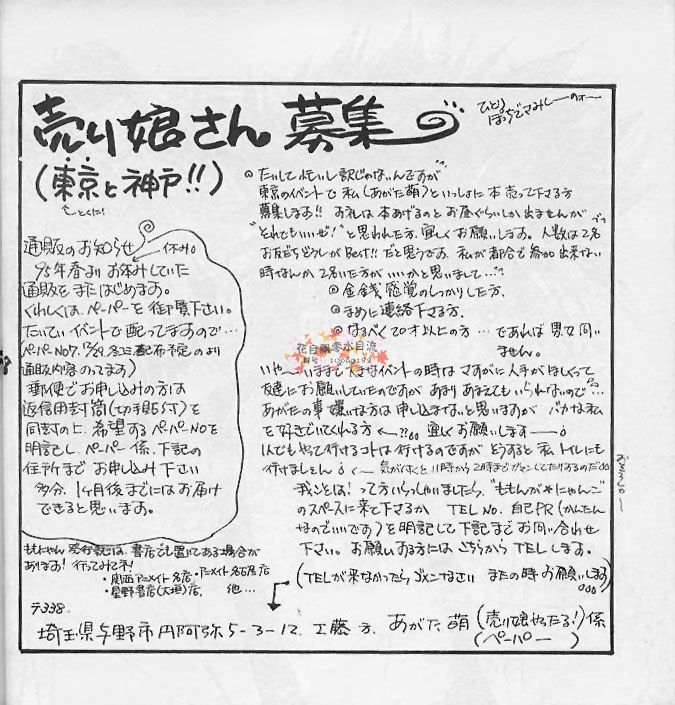 売り娘さん 募集
ひとりぼっちでさみしーのォー
(東京と神戸!!)
←とくに!
◎たいして忙しい訳じゃないんですが
東京のイベントで私(あがた萌)といっしょに本売って下さる方
募集します!! お礼は本あげるのとお昼ぐらいしか出ませんが
"それでもいいぜ!"と思われた方、宜しくお願いします。人数は2名
お友だちどうしがBest!!だと思うです。私が都合で参加出来ない
時なんか2名いた方がいいかと思いまして…
◎金銭感覚のしっかりした方、
◎まめに連絡下さる方、
◎なるべく20才以上の方…であれば男女問い
ません。
いや~いままで大きなイベントの時はさすがに人手がほしくって
友達にお願いしていたのですがあまりあまえてもいられないので
あがたの事嫌いな方は申し込まないと思いますがバカな私
を好きでいてくれる方 宜しくお願いします
1人でもやって行けるコトは行けるのですがどうすると私トイレにも
行けましぇん 気が付くと11時から2時までガマンしてたりするのだ
おそろしー
我こそは!って方いらっしゃいましたら、"ももんが*にゃんこ"
のスペースに来て下さるか TEL No. 自己PR(かんたん
なのでいいです)を明記して下記までお問い合わせ
下さい。お願いする方にはこちらからTELします。
(TELが来なかったらゴメンなさい またの時お願いします)
通販のお知らせ
←休み。
'95年春よりお休みしていた
通販をまたはじめます。
くわしくは、ペーパーを御覧下さい。
たいていイベントで配ってますので…
(ペーパーNo7. 配布予定のより
通販内容のってます)
郵便でお申し込みの方は
返信用封筒(切手貼付)を
同封の上、希望するペーパーNoを
明記し、ペーパー係、下記の
住所までお申し込み下さい
多分、1ヶ月後までにはお届け
できると思います。
ももにゃん発行誌は、書店でも置いてある場合が
あります! 行ってみてネ!
・関西アニメイト各店・アニメイト名古屋店
・星野書店(大垣)店、他…
〒338
埼玉県与野市円阿弥5-3-12. 工藤方. あがた萌(売り娘やったる!)係
(ペーパー)
花自飘零水自流